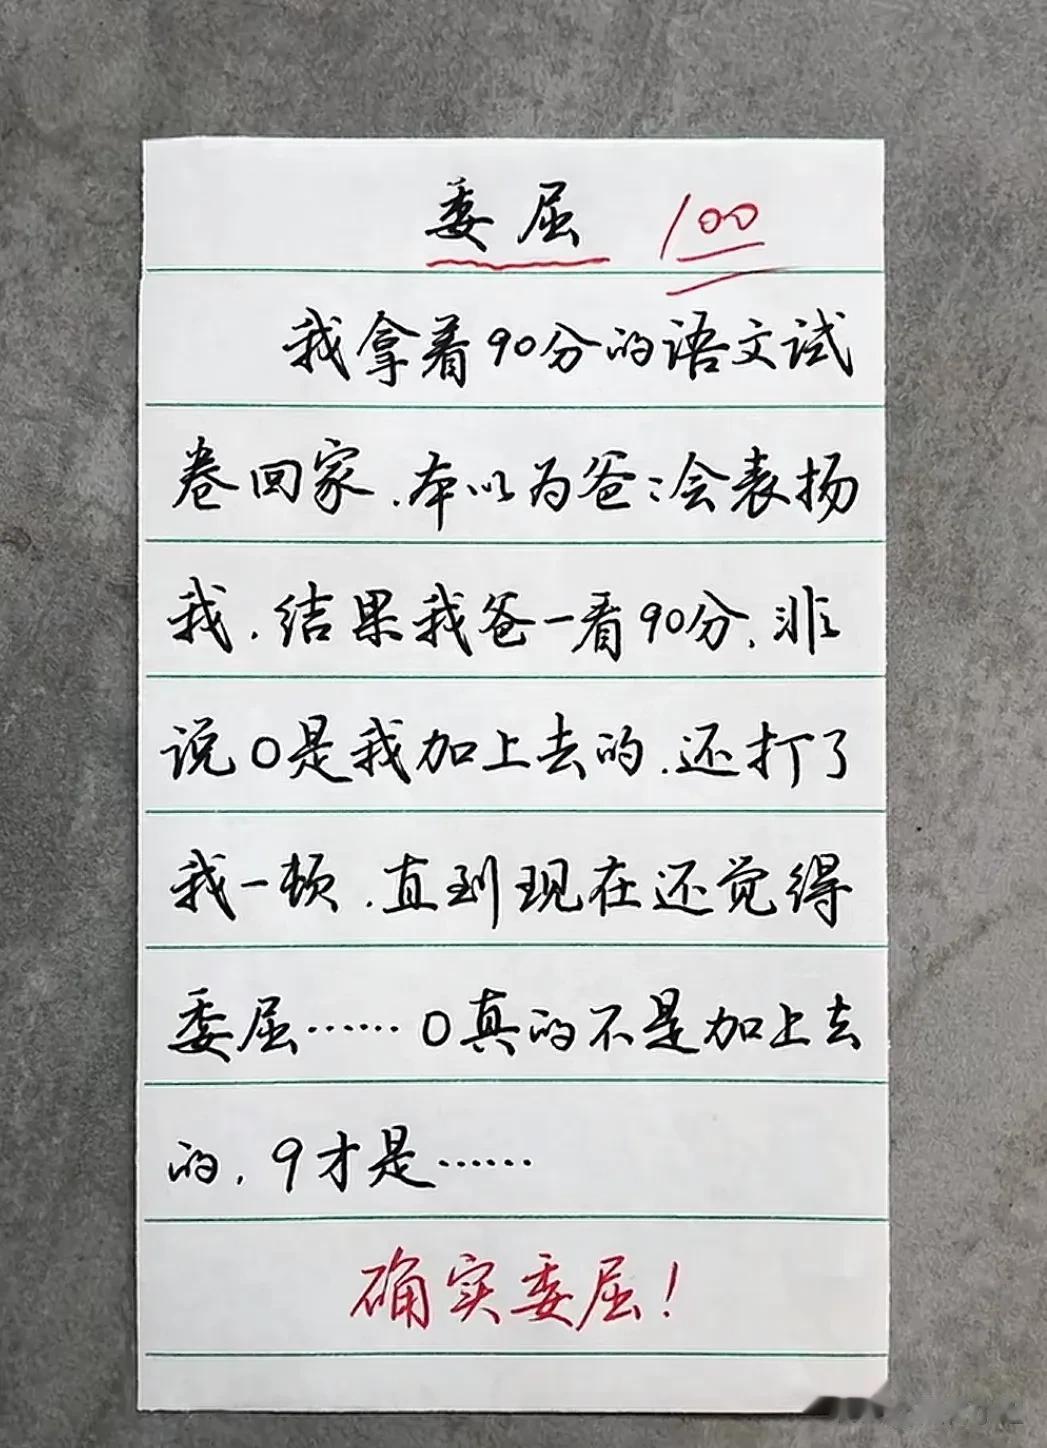 委屈 100
我拿着90分的语文试
卷回家,本以为爸:会表扬
我,结果我爸一看90分,非
说0是我加上去的,还打了
我一顿,直到现在还觉得
委屈……0真的不是加上去
的,9才是……
确实委屈!